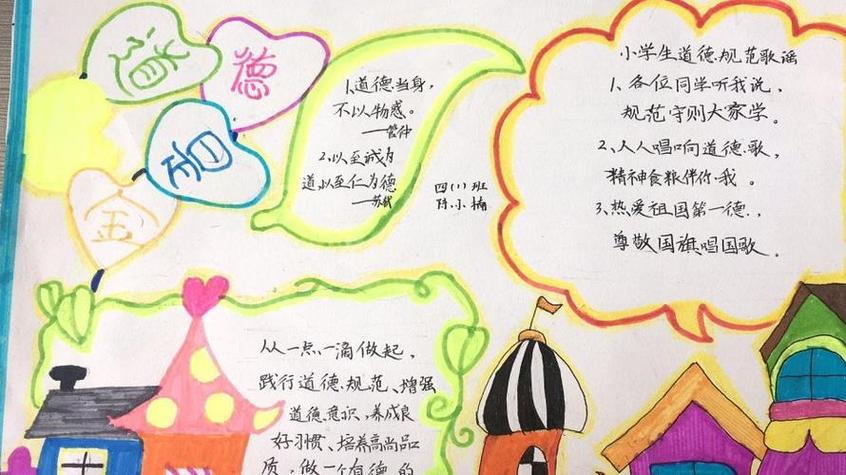 德
金
1、道德当身,
不以物惑。
——管仲
2、以至诚为
道,以至仁为德
——苏轼
四(1)班
小楠
小学生道德规范歌谣
1、各位同学听我说,
规范守则大家学。
2、人人唱响道德歌,
精神食粮伴你我。
3、热爱祖国第一德,
尊敬国旗唱国歌.
从一点一滴做起,
践行道德规范、增强
道德意识,养成良
好习惯、培养高尚品
质,做一个有德的